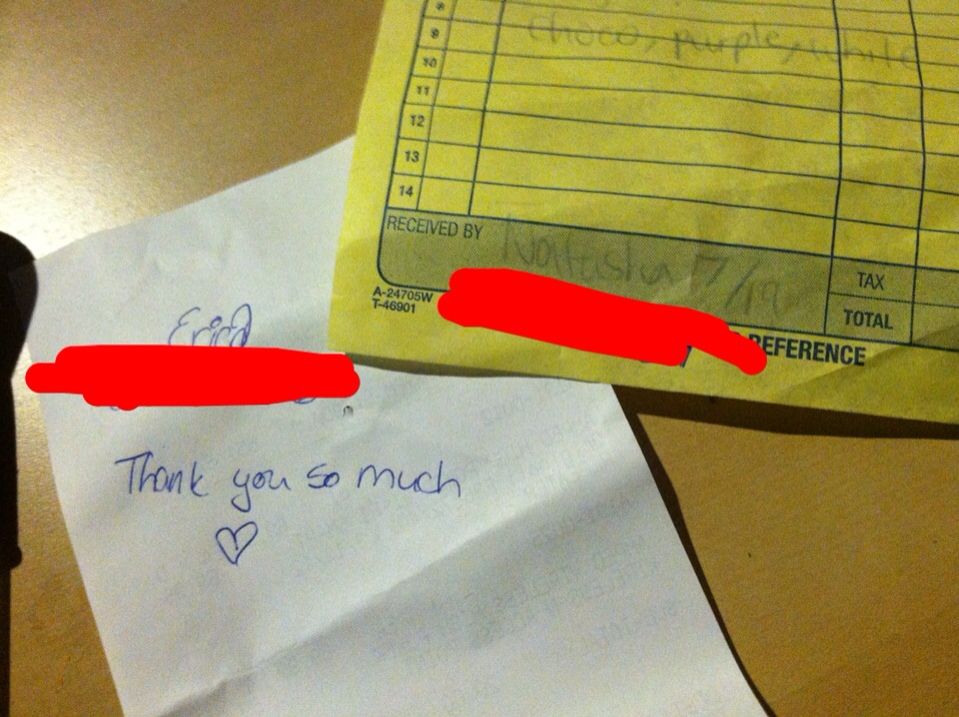 8
9 choco, purple, white
10
11
12
13
14
RECEIVED BY Natasha 7/19
TAX
TOTAL
A-24705W
T-46901
REFERENCE
Erica
Thank you so much
♡